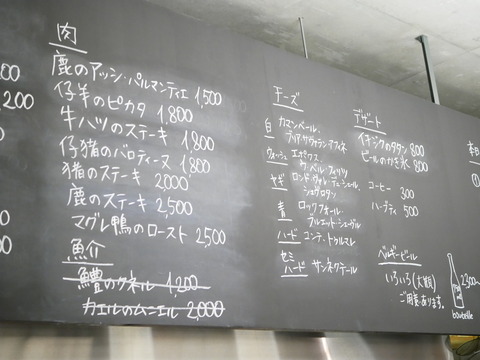 肉
鹿のアッシ・パルマンティエ 1,500
仔羊のピカタ 1,800
牛ハツのステーキ 1,800
仔猪のバロティーヌ 1,800
猪のステーキ 2,000
鹿のステーキ 2,500
マグレ鴨のロースト 2,500
魚介
鱧のクネル 1,200
カエルのムニエル 2,000
チーズ
白 カマンベール、
ブリア・サヴァラン・アフィネ
ウォッシュ エポワス
ヤギ
青 ロックフォール
ブルエット・シューグル
ハード コンテ、トゥルマレ
セミ
ハード サンネクテール
デザート
イチジクのタタン 800
ビールのかき氷 800
コーヒー 300
ハーブティ 500
ベルギービール
いろいろ(大類)
ご用意あります。
bouteille
本日
200